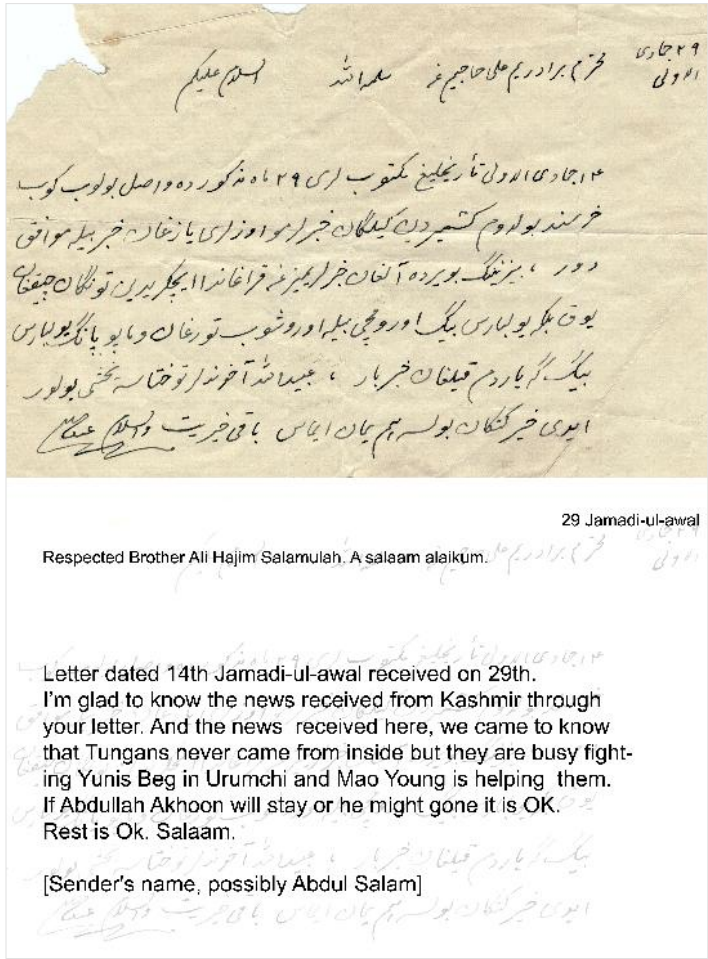 ۲۹ جمادی
الاولی
محترم برادریم علی حاجیم غه سلمه الله السلام علیکم
۱۴ جمادی الاولی تأریخلیغ مکتوب لری ۲۹ ماه مذکور ده واصل بولوب کوب
خرسند بولدوم کشمیر دین کیلگان خبر لر یازغان خبر بیله موافق
دور ، بیزنینگ بو یرده آلغان خبرلریمیز غه قراغاندا ایچکریدین تونگان چیققان
یوق بلکه یولبارس بیگ اورومچی بیله اوروشوب تورغان یولبارس
بیگ گه یاردم قیلغان خبر بار ، آخوند لر توختاسه یخشی بولور
ایدی خیر کتکان بولسه هم یمان ایماس باقی خیریت والسلام
29 Jamadi-ul-awal
Respected Brother Ali Hajim Salamulah. A salaam alaikum.
Letter dated 14th Jamadi-ul-awal received on 29th.
I’m glad to know the news received from Kashmir through
your letter. And the news received here, we came to know
that Tungans never came from inside but they are busy fight-
ing Yunis Beg in Urumchi and Mao Young is helping them.
If Abdullah Akhoon will stay or he might gone it is OK.
Rest is Ok. Salaam.
[Sender's name, possibly Abdul Salam]